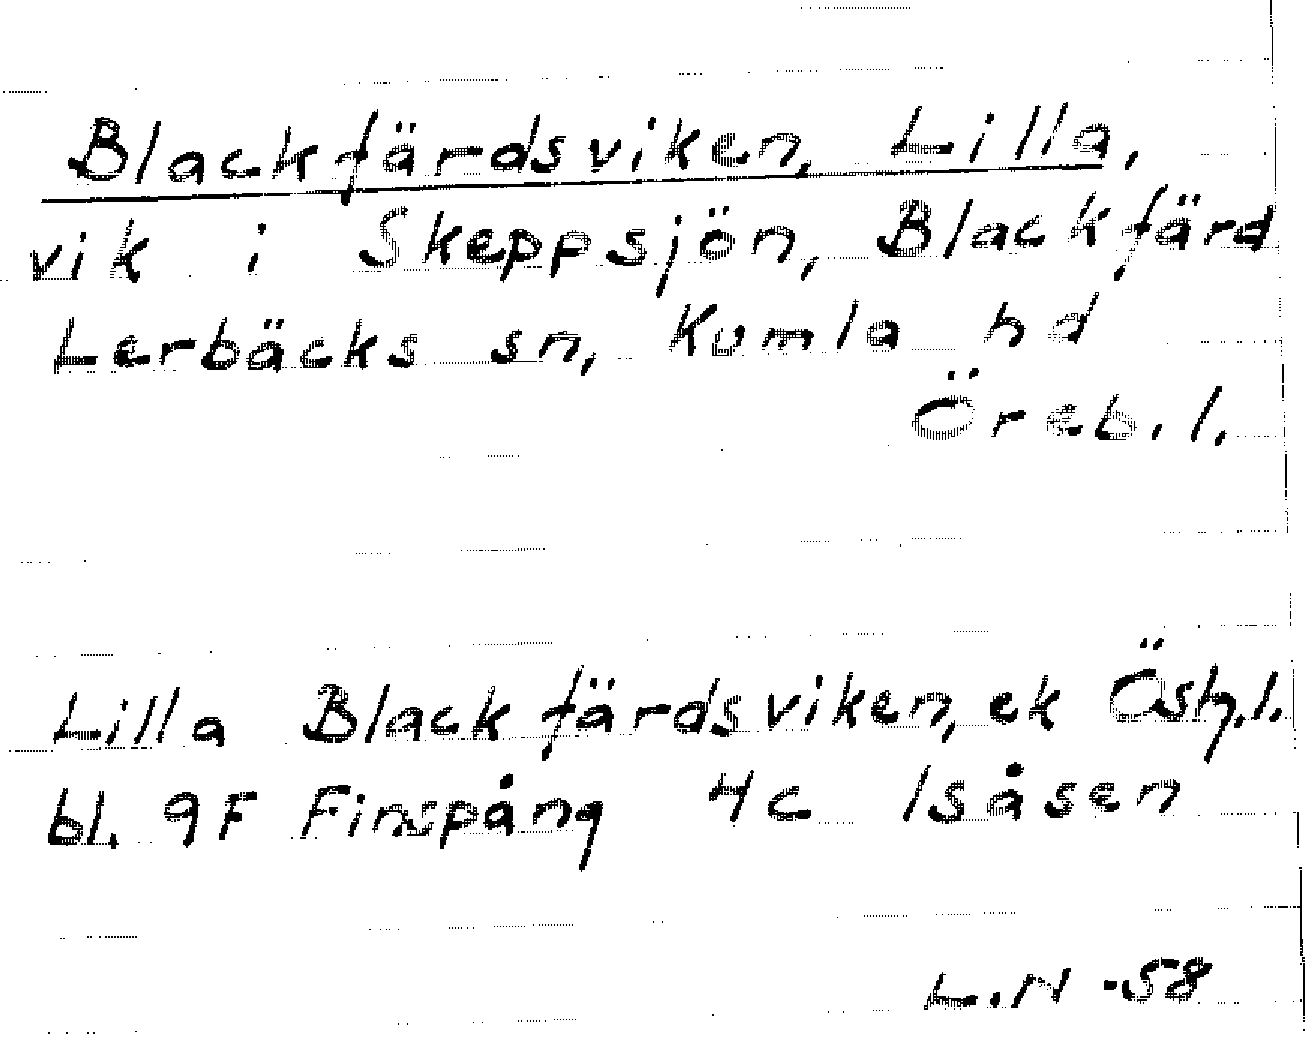 Blackfärdsviken, Lilla,
vik i Skeppsjön, Blackfärd
Lerbäcks sn, Kumla hd
Öreb. l.
Lilla Blackfärdsviken, ek Östg. l.
bl. 9F Finspång 4c Isåsen
L.N -58